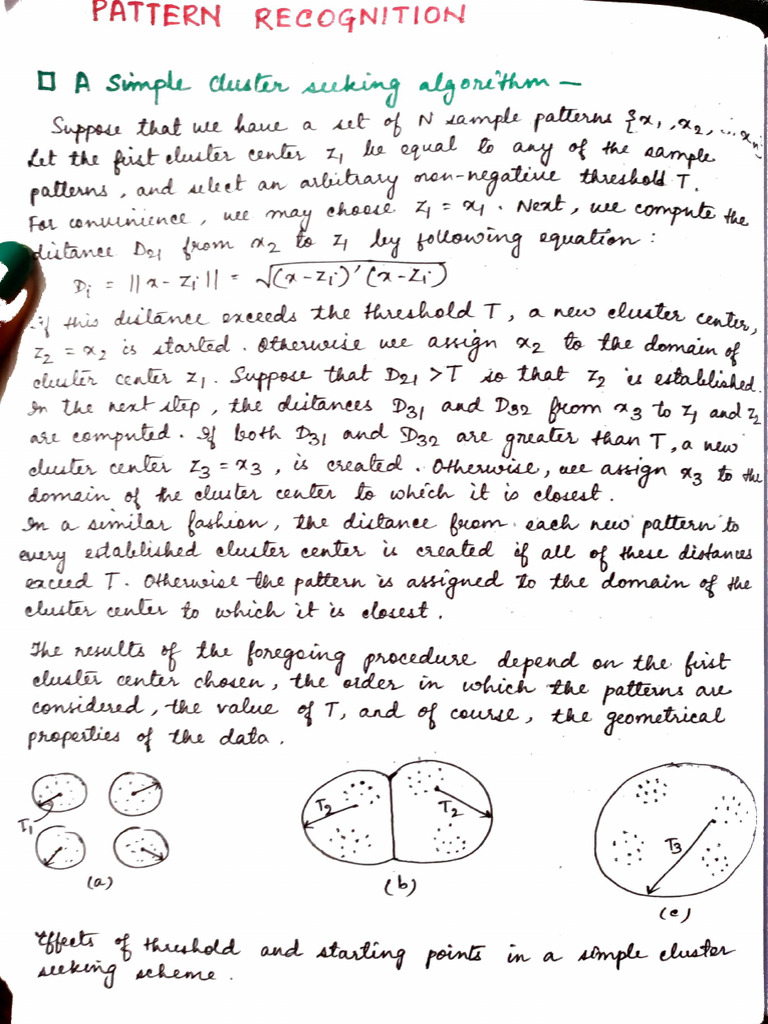 PATTERN RECOGNITION
□ A Simple cluster seeking algorithm —
Suppose that we have a set of N sample patterns {x1, x2, ... xn}
Let the first cluster center z1 be equal to any of the sample
patterns, and select an arbitrary non-negative threshold T.
For convinience, we may choose z1 = x1. Next, we compute the
distance D21 from x2 to z1 by following equation:
Di = ||x - zi|| = √(x-zi)' (x-zi)
if this distance exceeds the threshold T, a new cluster center,
z2 = x2 is started. Otherwise we assign x2 to the domain of
cluster center z1. Suppose that D21 > T so that z2 is established.
In the next step, the distances D31 and D32 from x3 to z1 and z2
are computed. If both D31 and D32 are greater than T, a new
cluster center z3 = x3, is created. Otherwise, we assign x3 to the
domain of the cluster center to which it is closest.
In a similar fashion, the distance from each new pattern to
every established cluster center is created if all of these distances
exceed T. Otherwise the pattern is assigned to the domain of the
cluster center to which it is closest.
The results of the foregoing procedure depend on the first
cluster center chosen, the order in which the patterns are
considered, the value of T, and of course, the geometrical
properties of the data.
T1
(a)
T2 T2
(b)
T3
(c)
Effects of threshold and starting points in a simple cluster
seeking scheme.